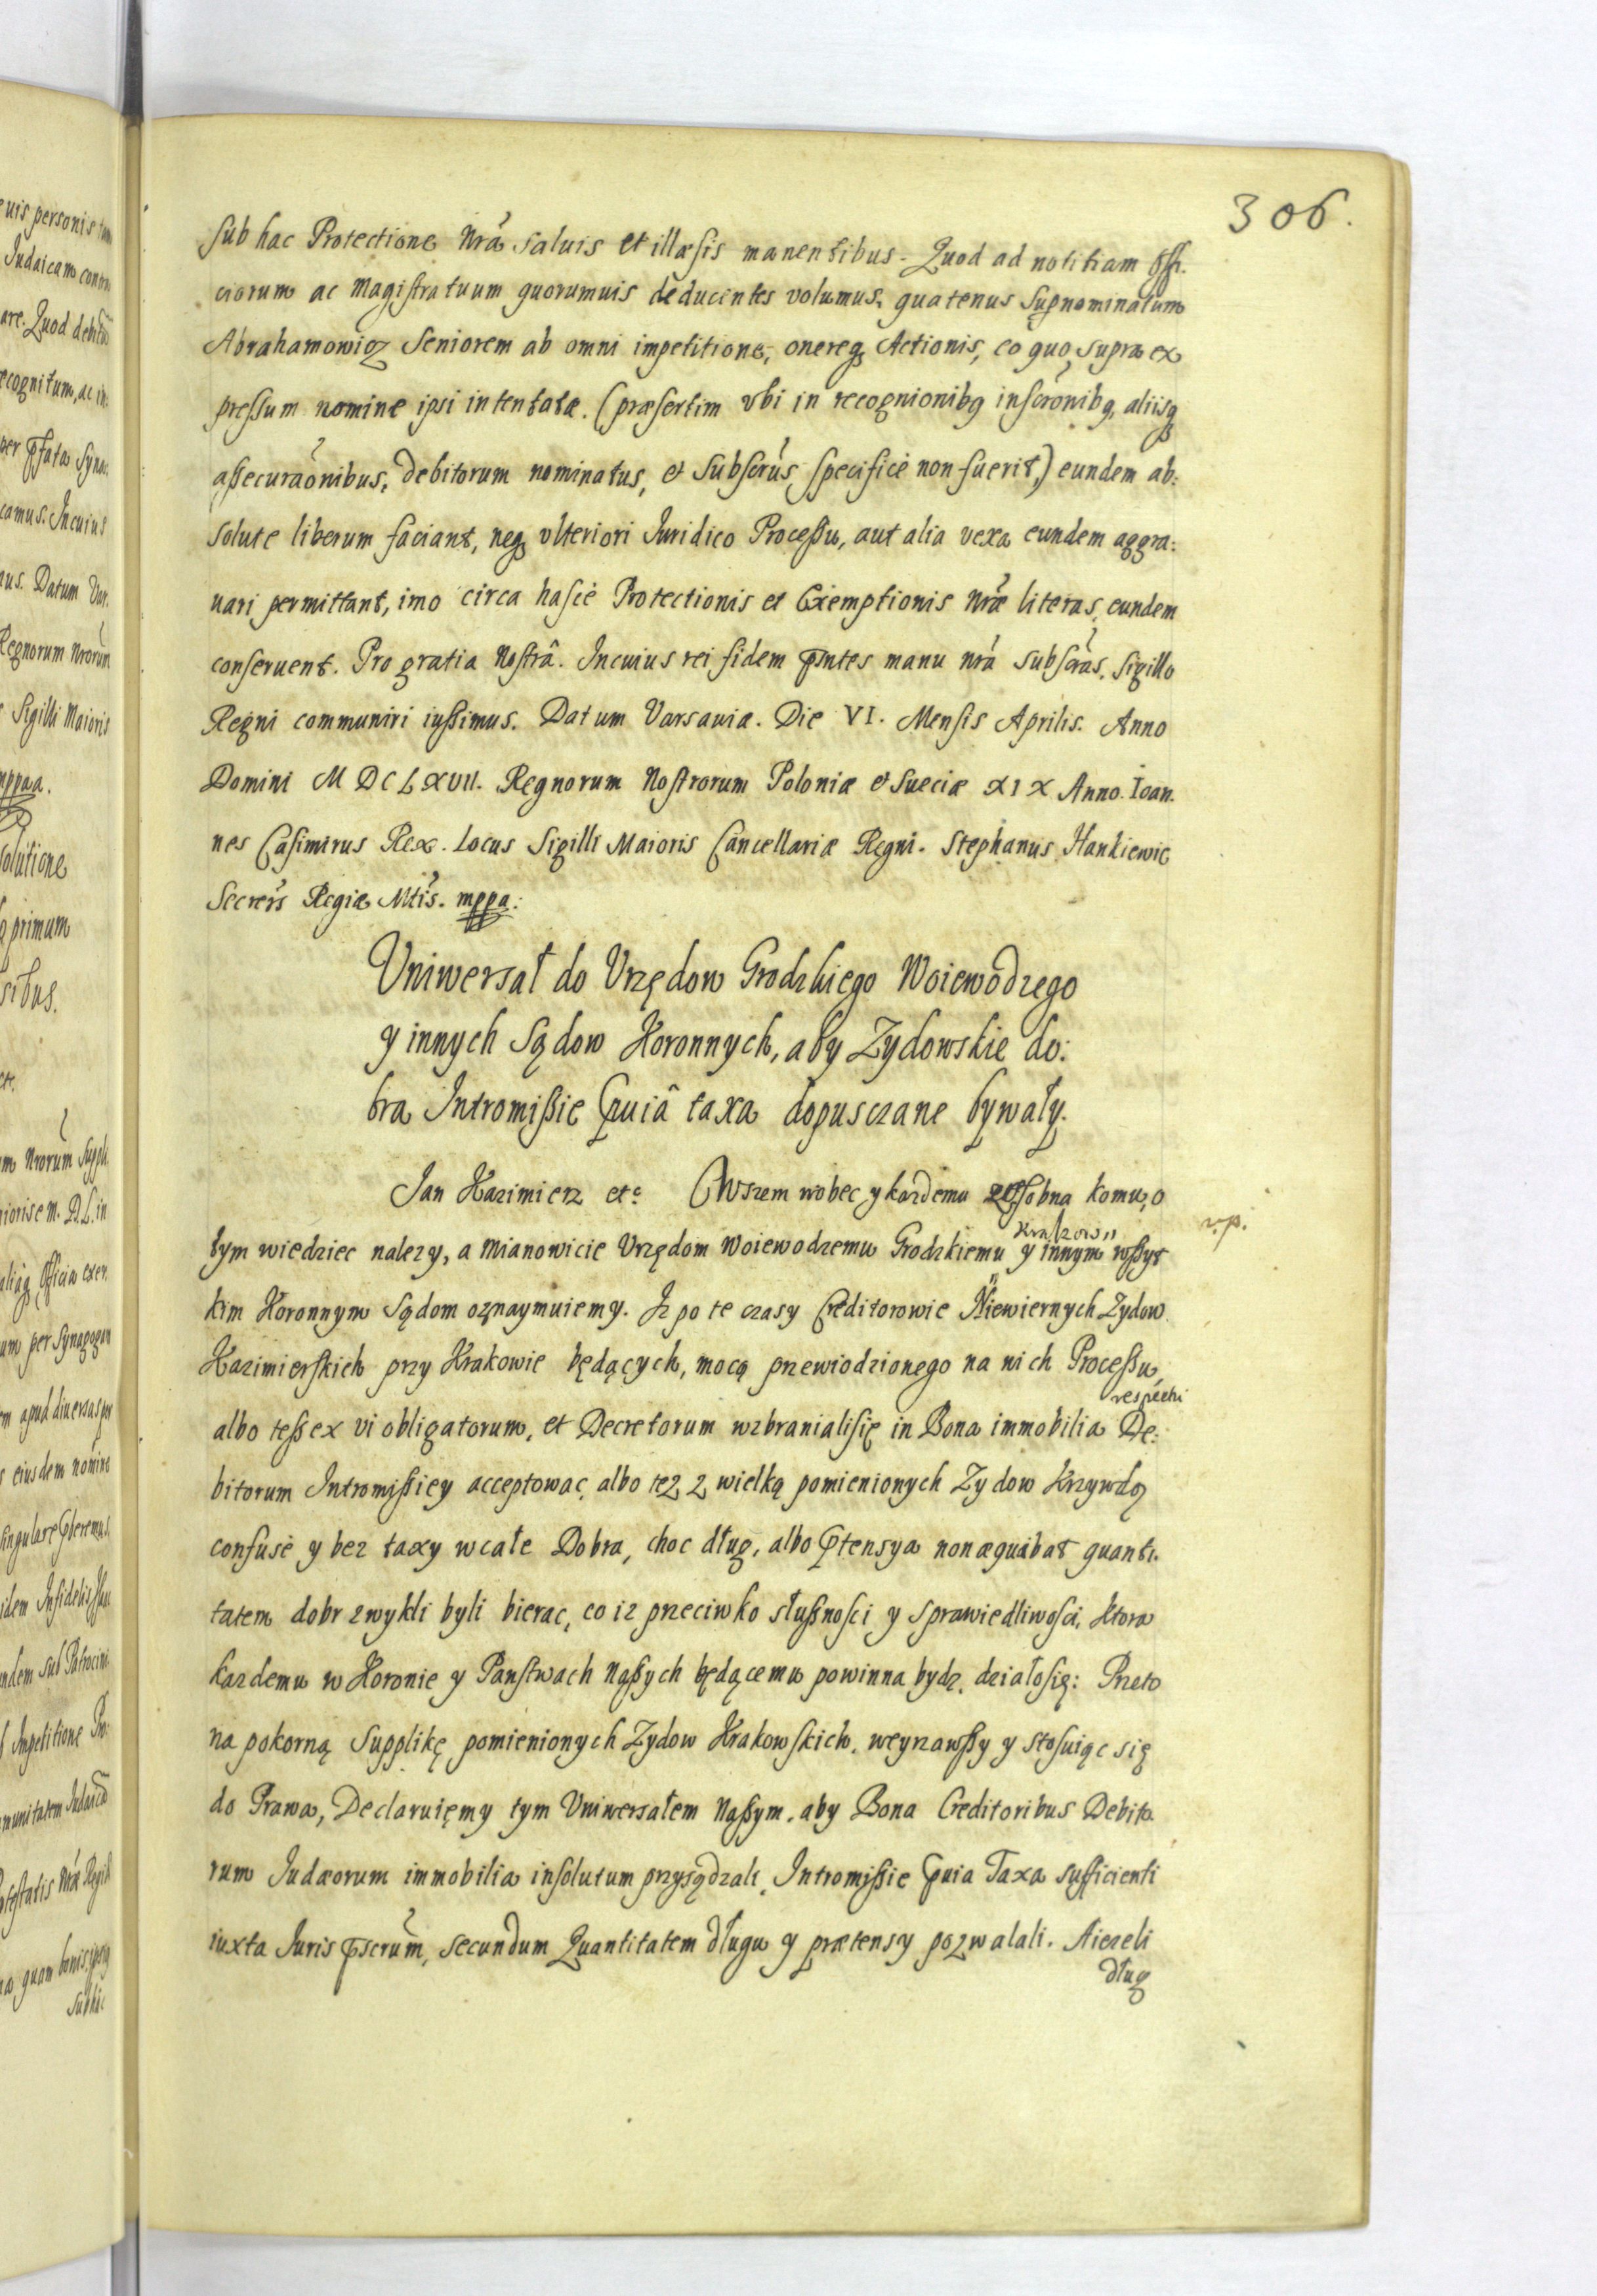 306.
sub hac Protectione Nrã saluis et illæsis manentibus. Quod ad notitiam Offi-
ciorum ac Magistratuum quorumuis deducentes volumus, quatenus supnominatum
Abrahamowicz Seniorem ab omni impetitione, onereq Actionis, eo quo supra ex
pressum nomine ipsi intentatæ. (præsertim vbi in recognionibq inscrõnibq, aliisq
assecuraõnibus, debitorum nominatus, et Subscrũs, specificè non fuerit,) eundem ab:
solute liberum faciant, neq vlteriori Iuridico Processu, aut alia vexa eundem aggra:
uari permittant, imo circa hascè Protectionis et Exemptionis Nræ literas, eundem
conseruent. Pro gratia Nostrâ. In cuius rei fidem pñtes manu nrã subscrãs, sigillo
Regni communiri iussimus. Datum Varsauiæ. Die VI. Mensis Aprilis. Anno
Domini M DC LXVII. Regnorum Nostrorum Poloniæ et Sueciæ XIX Anno. Ioan.
nes Casimirus Rex. Locus Sigilli Maioris Cancellariæ Regni. Stephanus Hankiewic
Secrers Regiæ Mtis. mppa:
Vniwersał do Vrzędow Grodzkiego Woiewodzego
y innych Sądow Koronnych, aby Zydowskie do:
bra Intromissie pruiâ taxa dopusczane bywały.
Jan Kazimierz etc Wszem wobec y kazdemu zossobna komu, o
v.p.
Krakow
tym wiedziec nalezy, a mianowicie Vrzędom Woiewodzemu Grodzkiemu y innym wssyt
kim Koronnym Sądom oznaymuiemy. Iz po te czasy Creditorowie Niewiernych Zydow
Kazimierskich przy Krakowie będących, mocą przewiodzionego na nich Processu,
respecti
albo tess ex vi obligatorum, et Decretorum wzbranialisię in Bona immobilia De:
bitorum Intromissiey acceptowac, albo tez z wielką pomienionych Zydow Krzywdą
confusè y bez taxy wcałe Dobra, choc dług, albo ptensya non æquabat quanti.
tatem dobr zwykli byli bierac, co iz przeciwko słussnosci y sprawiedliwosci, ktora
kazdemu w Koronie y Panstwach Nassych będącemu powinna bydz, działosię: Przeto
na pokorną Supplikę pomienionych Zydow Krakowskich, weyrzawssy y stosuiąc się
do Prawa, Declaruięmy tym Vniwersałem Nassym, aby Bona Creditoribus Debito.
rum Judæorum immobilia insolutum przysądzali, Intromissie puia Taxa sufficienti
iuxta Iuris pscrũm, secundum Quantitatem długu y prætensy pozwalali. Aiezeli
dług